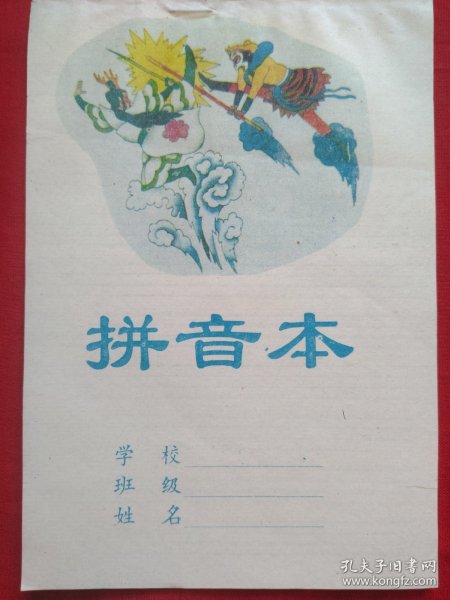 拼音本
学 校
班 级
姓 名
孔夫子旧书网
www.kongfz.com